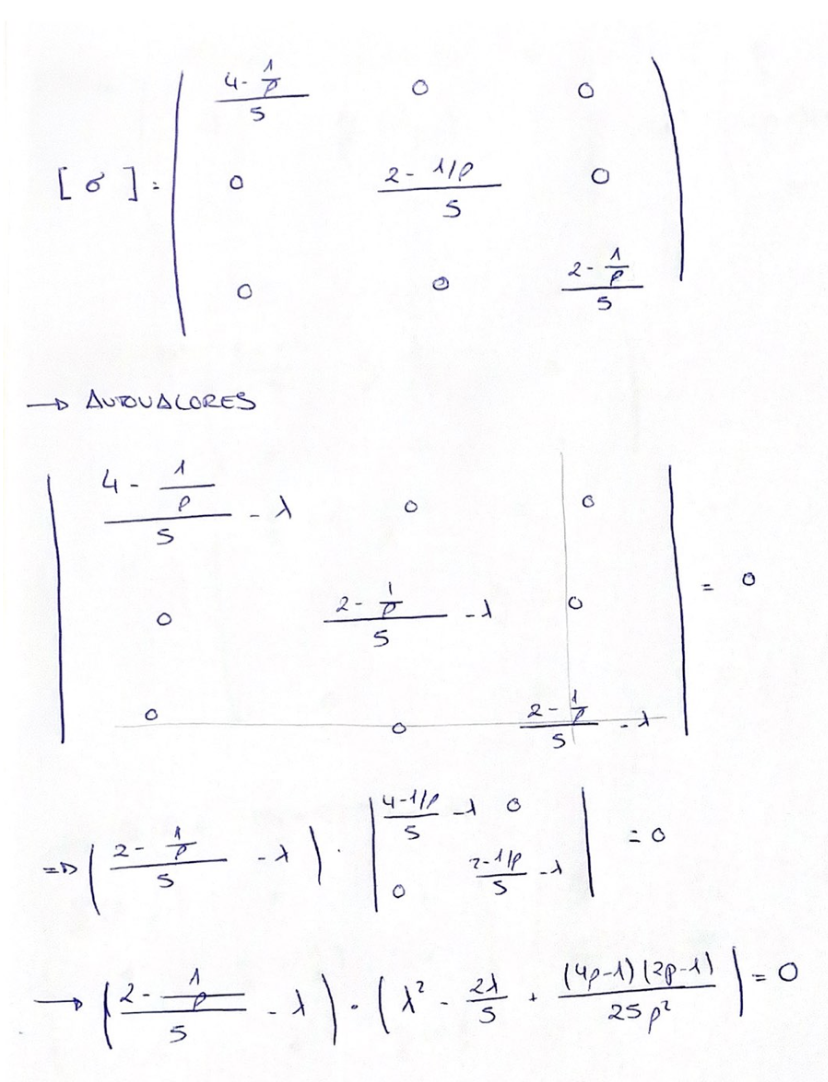 [σ] = ( (4 - 1/ρ)/5 0 0
0 (2 - 1/ρ)/5 0
0 0 (2 - 1/ρ)/5 )
→ AUTOVALORES
| (4 - 1/ρ)/5 - λ 0 0 |
| 0 (2 - 1/ρ)/5 - λ 0 | = 0
| 0 0 (2 - 1/ρ)/5 - λ |
=> ( (2 - 1/ρ)/5 - λ ) · | (4 - 1/ρ)/5 - λ 0 | = 0
| 0 (2 - 1/ρ)/5 - λ |
→ ( (2 - 1/ρ)/5 - λ ) · ( λ² - 2λ/5 + (4ρ-1)(2ρ-1)/25ρ² ) = 0